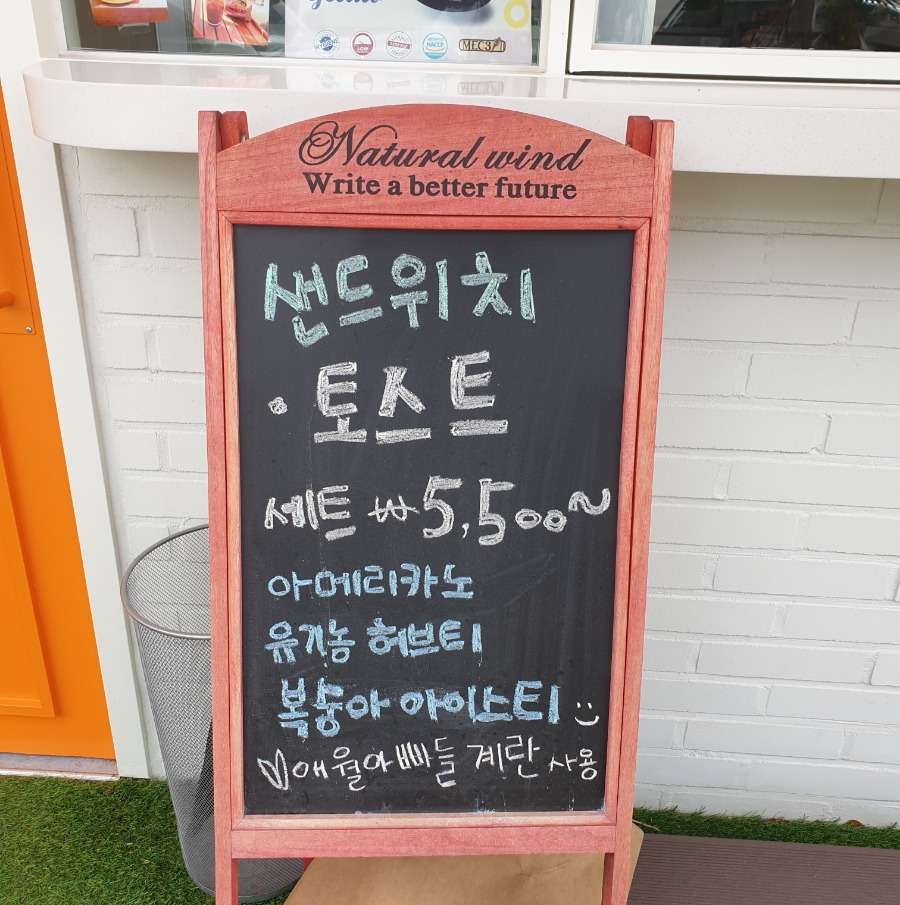 HYGIENE
LOW
HACCP
MEC3
Natural wind
Write a better future
샌드위치
· 토스트
세트 ₩5,500~
아메리카노
유기농 허브티
복숭아 아이스티 :)
♡애월아빠들 계란 사용